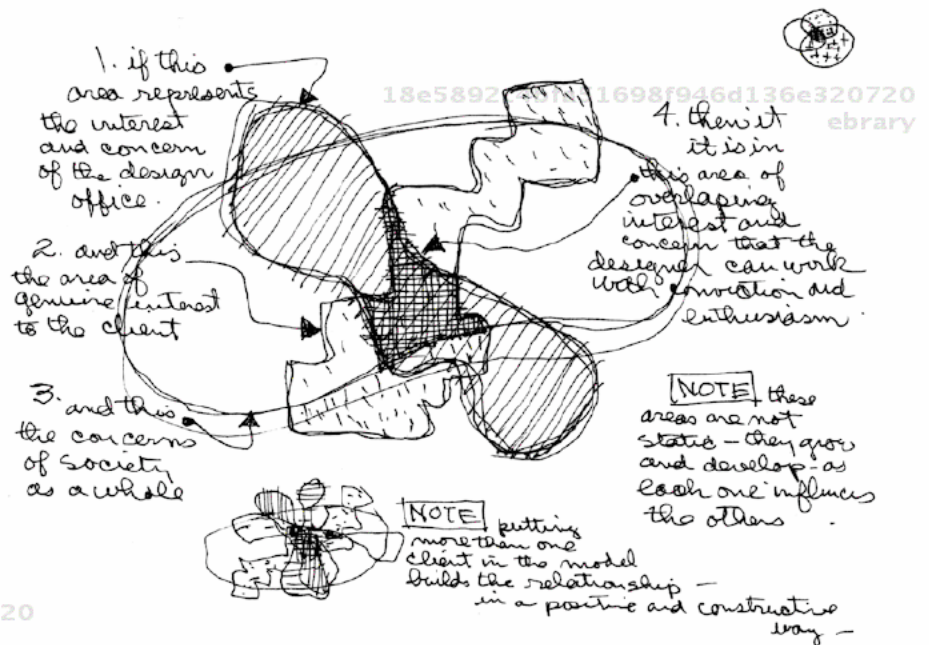 1. if this
area represents
the interest
and concern
of the design
office.
2. and this
the area of
genuine interest
to the client
3. and this
the concerns
of society
as a whole
18e5892 51698f946d136e320720
ebrary
4. then it
it is in
this area of
overlaping
interest and
concern that the
designer can work
with conviction and
enthusiasm
NOTE these
areas are not
static - they grow
and develop - as
each one influences
the others .
NOTE putting
more than one
client in the model
builds the relationship -
in a positive and constructive
way -
20